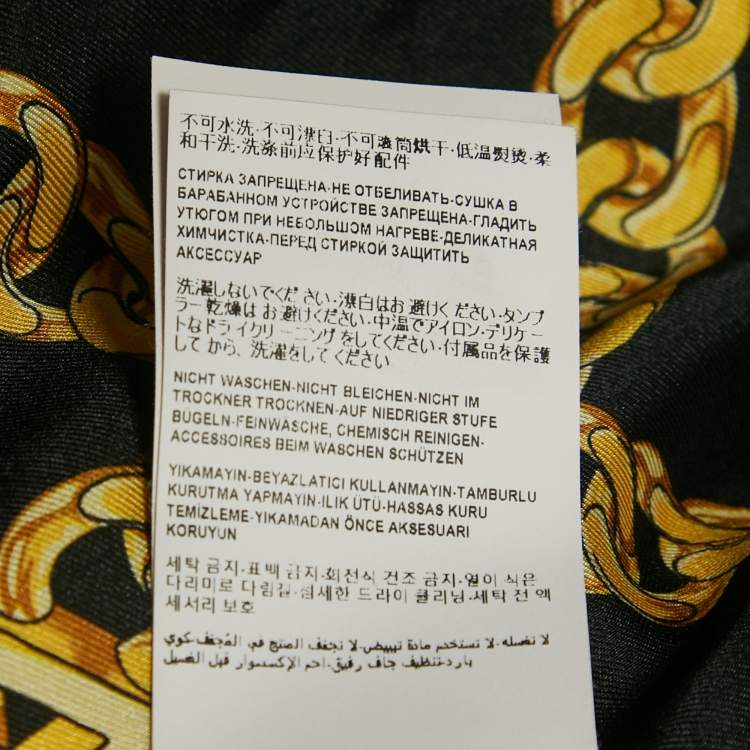 不可水洗-不可漂白-不可滚筒烘干-低温熨烫-柔
和干洗-洗涤前应保护好配件
СТИРКА ЗАПРЕЩЕНА-НЕ ОТБЕЛИВАТЬ-СУШКА В
БАРАБАННОМ УСТРОЙСТВЕ ЗАПРЕЩЕНА-ГЛАДИТЬ
УТЮГОМ ПРИ НЕБОЛЬШОМ НАГРЕВЕ-ДЕЛИКАТНАЯ
ХИМЧИСТКА-ПЕРЕД СТИРКОЙ ЗАЩИТИТЬ
АКСЕССУАР
洗濯しないでください-漂白はお避けください-タンブ
ラー乾燥はお避けください-中温でアイロン-デリケー
トなドライクリーニングをしてください-付属品を保護
してから、洗濯をしてください
NICHT WASCHEN-NICHT BLEICHEN-NICHT IM
TROCKNER TROCKNEN-AUF NIEDRIGER STUFE
BÜGELN-FEINWÄSCHE, CHEMISCH REINIGEN-
ACCESSOIRES BEIM WASCHEN SCHÜTZEN
YIKAMAYIN-BEYAZLATICI KULLANMAYIN-TAMBURLU
KURUTMA YAPMAYIN-ILIK ÜTÜ-HASSAS KURU
TEMİZLEME-YIKAMADAN ÖNCE AKSESUARI
KORUYUN
세탁 금지-표백 금지-회전식 건조 금지-열이 식은
다리미로 다림질-섬세한 드라이 클리닝-세탁 전 액
세서리 보호
لا تغسله-لا تستخدم مادة تبييض-لا تجفف المنتج في المُجفف-كوي
بارد-تنظيف جاف رقيق-احم الإكسسوار قبل الغسيل